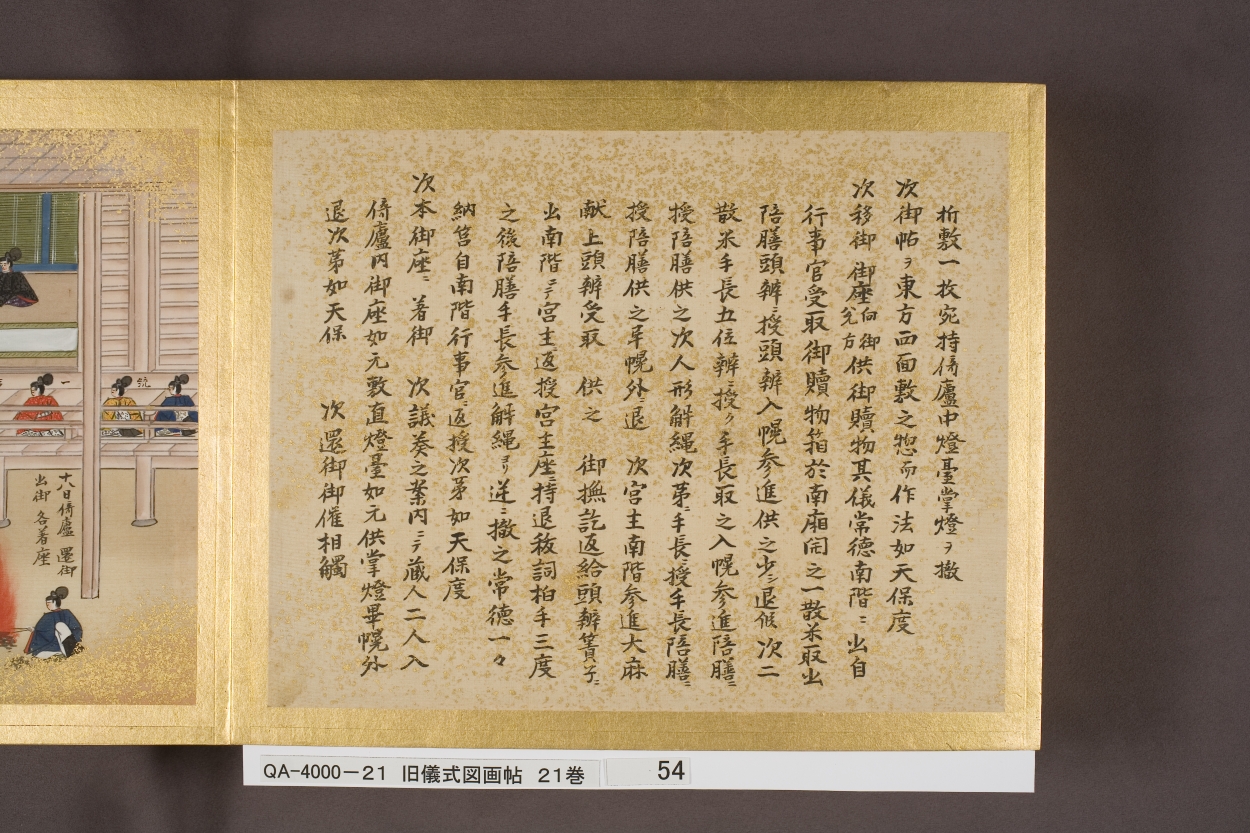 折敷一枚宛持倚廬中燈臺掌燈ヲ撤
次御帖ヲ東方西面敷之惣而作法如天保度
次移御 御座向御兌方供御贖物其儀常德南階ニ出自
行事官受取御贖物箱於南廂間之一散米取出
陪膳頭辨ニ授頭辨入幌参進供之少シ退候 次二
散米手長五位辨ニ授ク手長取之入幌参進陪膳ニ
授陪膳供之次人形解縄次第ニ手長ニ授手長陪膳ニ
授陪膳供之畢幌外ニ退 次宮主南階参進大麻
献上頭辨受取 供之 御撫訖返給頭辨簀子ニ
出南階ニテ宮主ニ返授宮主座ニ持退秡詞拍手三度
之後陪膳手長参進解縄ヨリ逆ニ撤之常德一々
納筥自南階行事官ニ返授次第如天保度
次本御座ニ 著御 次議奏之案内ニテ藏人二人入
倚廬内御座如元敷直燈臺如元供掌燈畢幌外
退次第如天保 次還御御催相觸
一
統
十八日倚廬 還御
出御 各著座
QA-4000-21 旧儀式図画帖 21巻 54